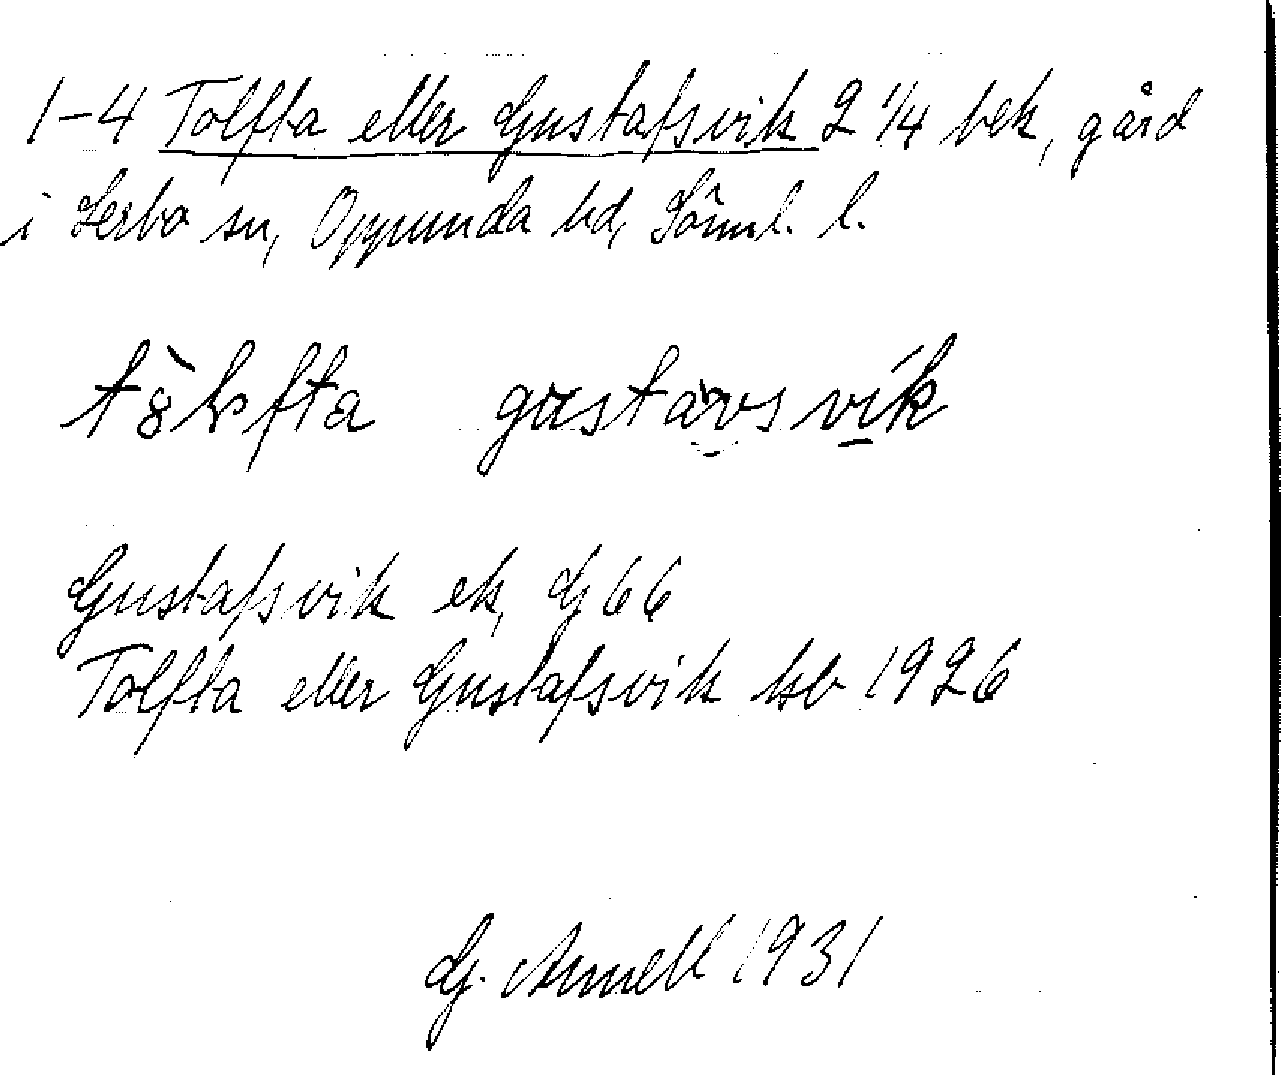 1-4 Tolfta eller Gustafsvik 2 1/4 bek, gård
i Lerbo sn, Oppunda hd, Söml. l.
gustavsvik
Gustafsvik ek, G 66
Tolfta eller Gustafsvik hsb 1926
G. Arnell 1931